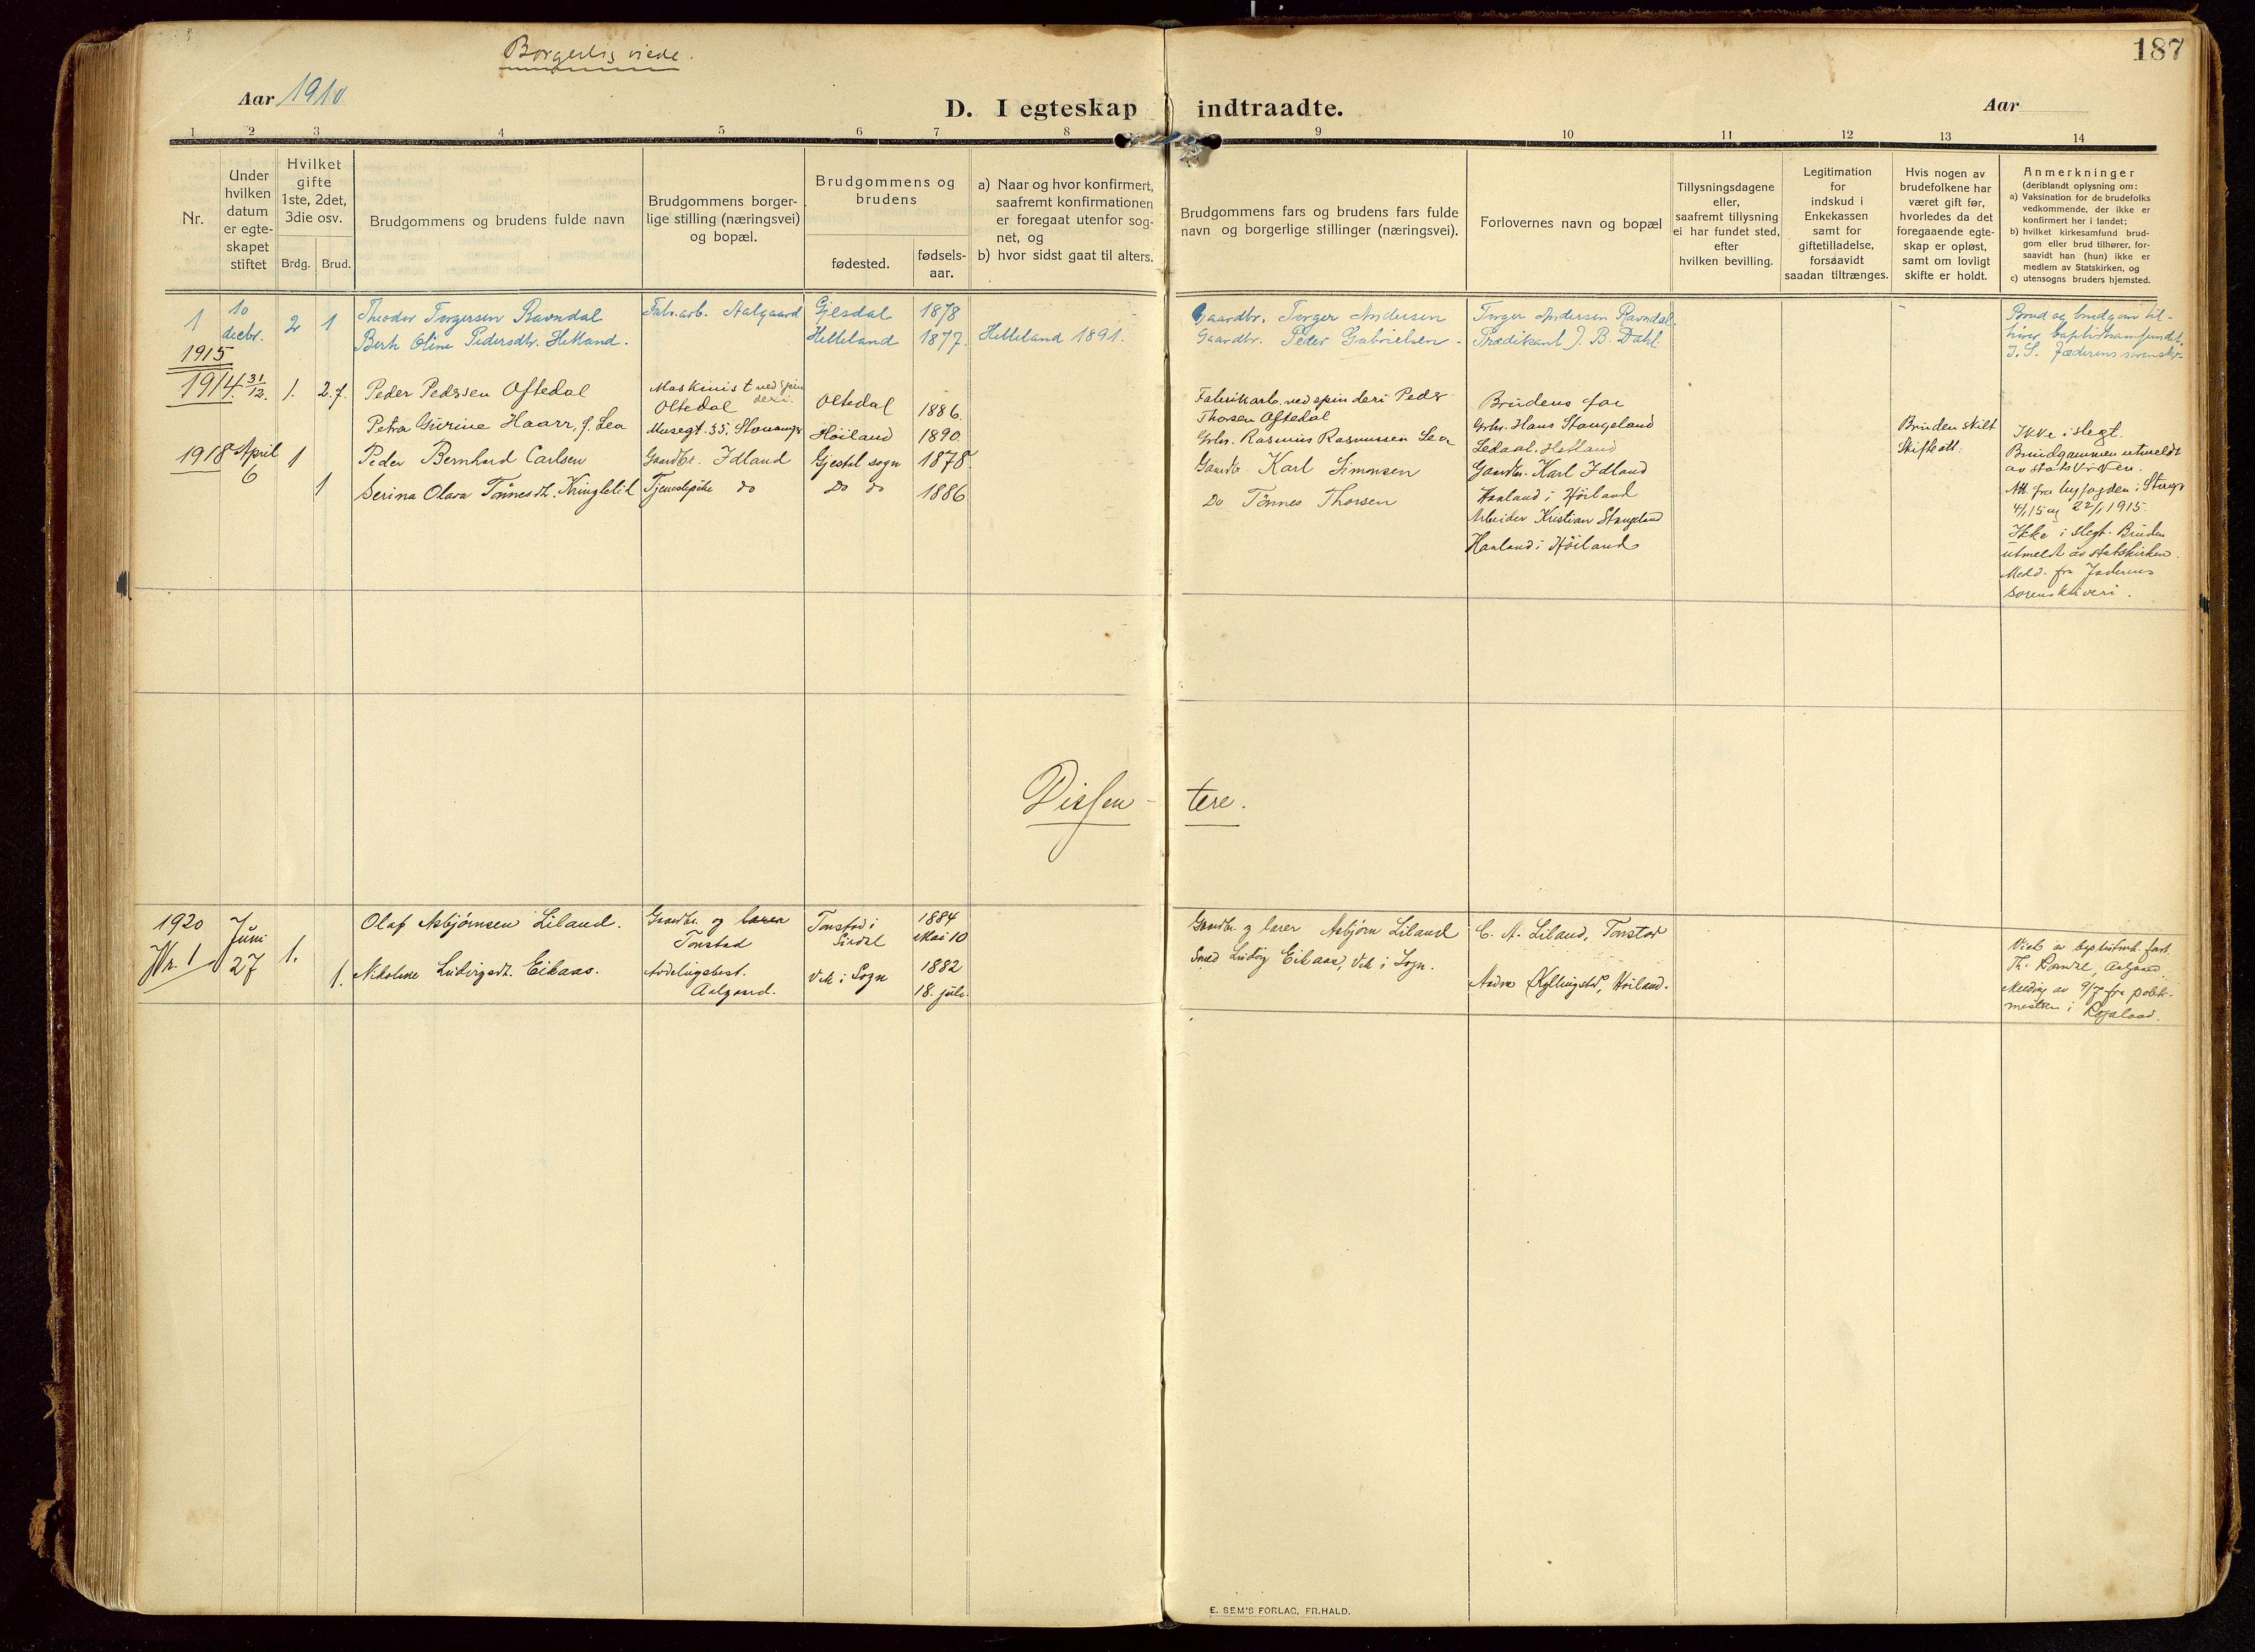 Borgerlig viede.
187
Aar 1910
D. I egteskap indtraadte.
Aar
1 2 3 4 5 6 7 8 9 10 11 12 13 14
Nr.
Under
hvilken
datum
er egte-
skapet
stiftet
Hvilket
gifte
1ste, 2det,
3die osv.
Brdg. Brud.
Brudgommens og brudens fulde navn
Brudgommens borger-
lige stilling (næringsvei)
og bopæl.
Brudgommens og
brudens
fødested.
fødsels-
aar.
a) Naar og hvor konfirmert,
saafremt konfirmationen
er foregaat utenfor sog-
net, og
b) hvor sidst gaat til alters.
Brudgommens fars og brudens fars fulde
navn og borgerlige stillinger (næringsvei).
Forlovernes navn og bopæl
Tillysningsdagene
eller,
saafremt tillysning
ei har fundet sted,
efter
hvilken bevilling.
Legitimation
for
indskud i
Enkekassen
samt for
giftetilladelse,
forsaavidt
saadan tiltrænges.
Hvis nogen av
brudefolkene har
været gift før,
hvorledes da det
foregaaende egte-
skap er opløst,
samt om lovligt
skifte er holdt.
Anmerkninger
(deriblandt oplysning om:
a) Vaksination for de brudefolks
vedkommende, der ikke er
konfirmert her i landet;
b) hvilket kirkesamfund brud-
gom eller brud tilhører, for-
saavidt han (hun) ikke er
medlem av Statskirken, og
c) utensogns bruders hjemsted.
1
10
decbr.
2 1
Theodor Torgersen Ravndal
Berte Oline Pedersdtr. Hetland.
Fabr.arb. Aalgaard
Gjesdal 1878
Helleland 1877.
Helleland 1891.
Gaardbr. Torger Andersen
Gaardbr. Peder Gabrielsen -
Torger Andersen Ravndal.
Prædikant J. B. Dahl
Brud og brudgom til-
hører baptistsamfundet.
1915
1914. 31/12.
1. 2. f.
Peder Pedersen Oftedal
Petra Gurine Haarr, f. Lea
Maskinist ved spin
deri
Oltedal
Musegt. 35, Stavanger
Oltedal 1886.
Höiland 1890.
Fabrikarb. ved spinderi Peder
Thorsen Oftedal
Grbr. Rasmus Rasmussen Lea
Brudens far
Grbr. Hans Stangeland
Bruden skilt
Skifteatt.
Ikke i slegt.
Brudgommen utmeldt
av statskirken.
Att. fra byfogden i Stvgr
4/1 15 og 22/1 1915.
1918 April
6
1
1
Peder Bernhard Carlsen
Serina Olava Tönnesdt. Kringleli
Gaardbr. Idland
Tjenestepike do
Gjestal sogn 1878
Do do 1886
Gaardbr. Karl Simonsen
Do Tönnes Thorsen
Gaardbr. Karl Idland
Haaland i Höiland
Arbeider Kristian Stangeland
Haaland i Höiland
Ikke i slegt. Bruden
utmeldt av statskirken.
Medd. fra Jæderens
sorenskriveri.
Dissen- tere.
1920
Nr. 1
Juni
27
1.
1.
Olaf Asbjørnsen Liland.
Nikoline Ludvigsdt. Eikaas.
Gaardbr. og lærer
Tonstad
Avdelingsbest.
Aalgaard.
Tonstad i
Sirdal
1884
Mai 10
Vik i Sogn
1882
18. juli.
Gaardbr. og lærer Asbjørn Liland
Smed Ludvig Eikaas, Vik i Sogn.
C. A. Liland, Tonstad
Andrea Kyllingstad, Höiland.
Viet av baptistmh. forst.
Th. Ravndal, Aalgaard.
Melding av 9/7 fra politi-
mesteren i Rogaland.
E. SEM'S FORLAG, FR.HALD.